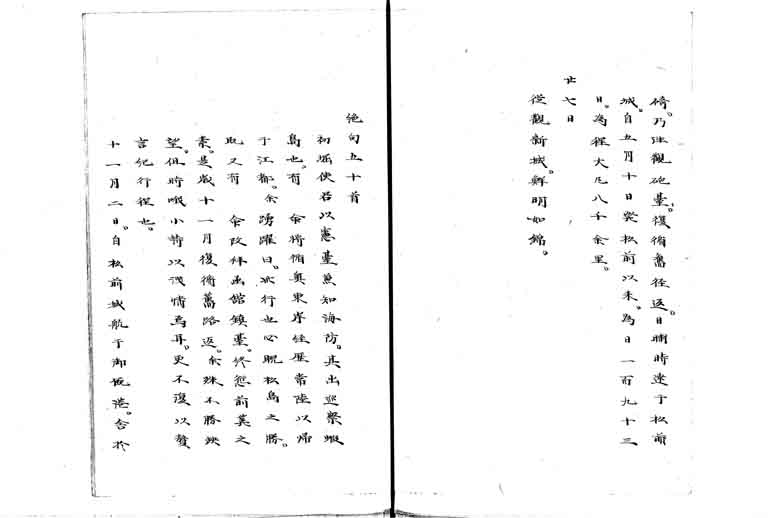 脩。乃往觀砲臺。復循舊径返。日晡時達于松前
城。自五月十日發松前以来。為日一百九十三
日。為程大凡八千余里。
廿七日
從觀新城。鮮明如錦。
絶句五十首
初堀使君以憲臺兼知海防。其出巡察蝦
島也。有 命将循奥東岸経歴常陸以帰
于江都。余踴躍曰。此行也必覩松島之勝。
既又有 命改符函館鎮臺。終怨前冀之
素。是歳十一月復循舊路返。余殊不勝怏
望。但時綴小詩以洩情焉耳。更不復以贅
言紀行程也。
十一月二日。自松前城航于御厩港。舎於